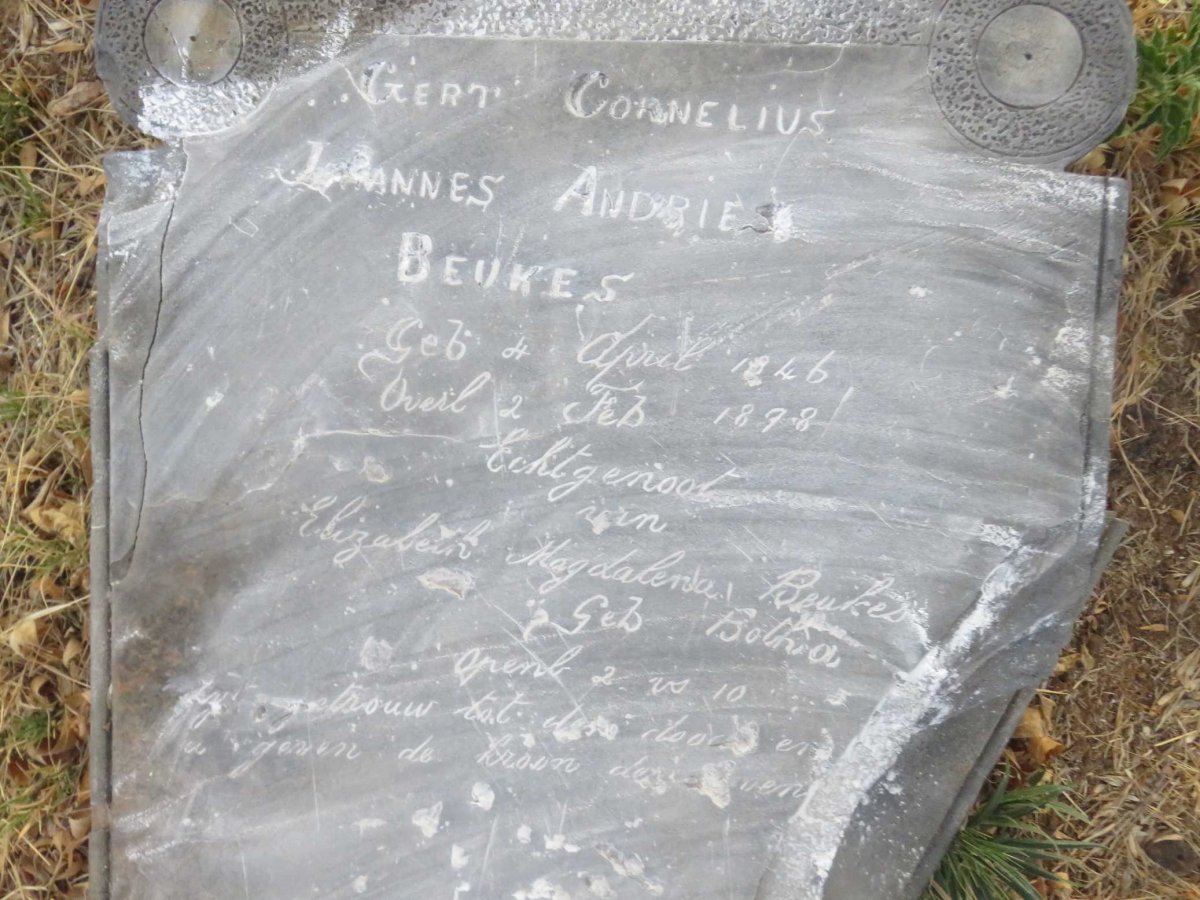 Gert Cornelius
Johannes Andries
Beukes
Geb 4 April 1846
Overl 2 Feb 1898
Echtgenoot
van
Elizabeth Magdalena Beukes
Geb Botha
openb 2 vs 10
getrouw tot den dood en
u geven de kroon